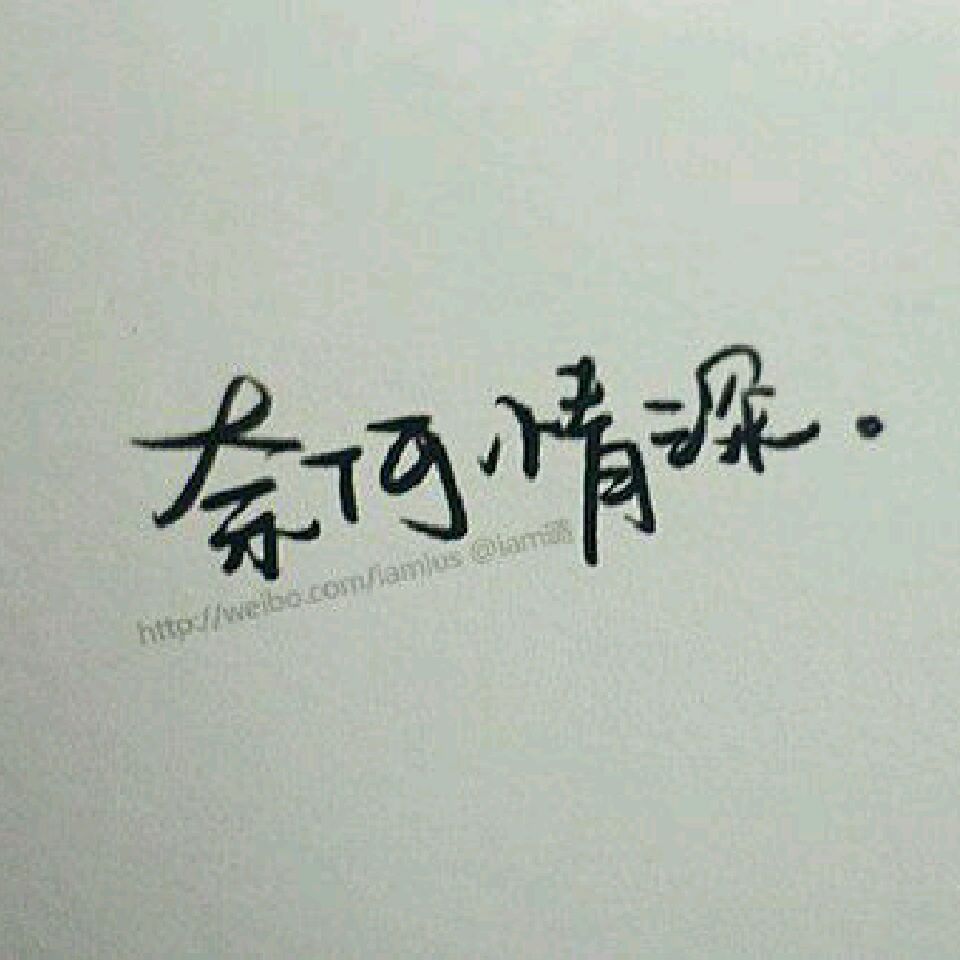 奈何情深.
http://weibo.com/iamjus @iam